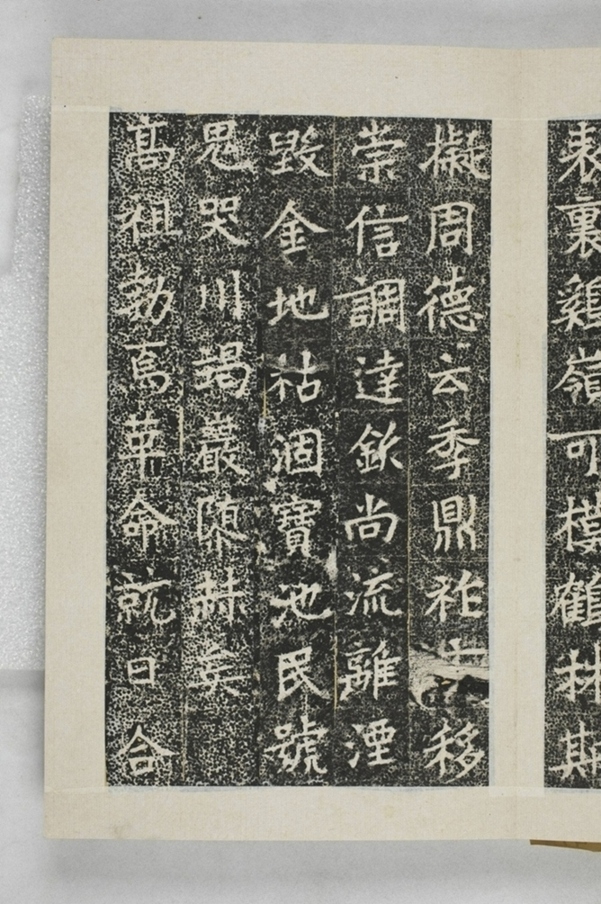 表裏鷄嶺可模鶴林斯
擬周德云季鼎祚移
崇信調達欽尚流離湮
毀金地枯涸寶池民號
鬼哭川竭巖赫矣
高祖勃焉革命就日合